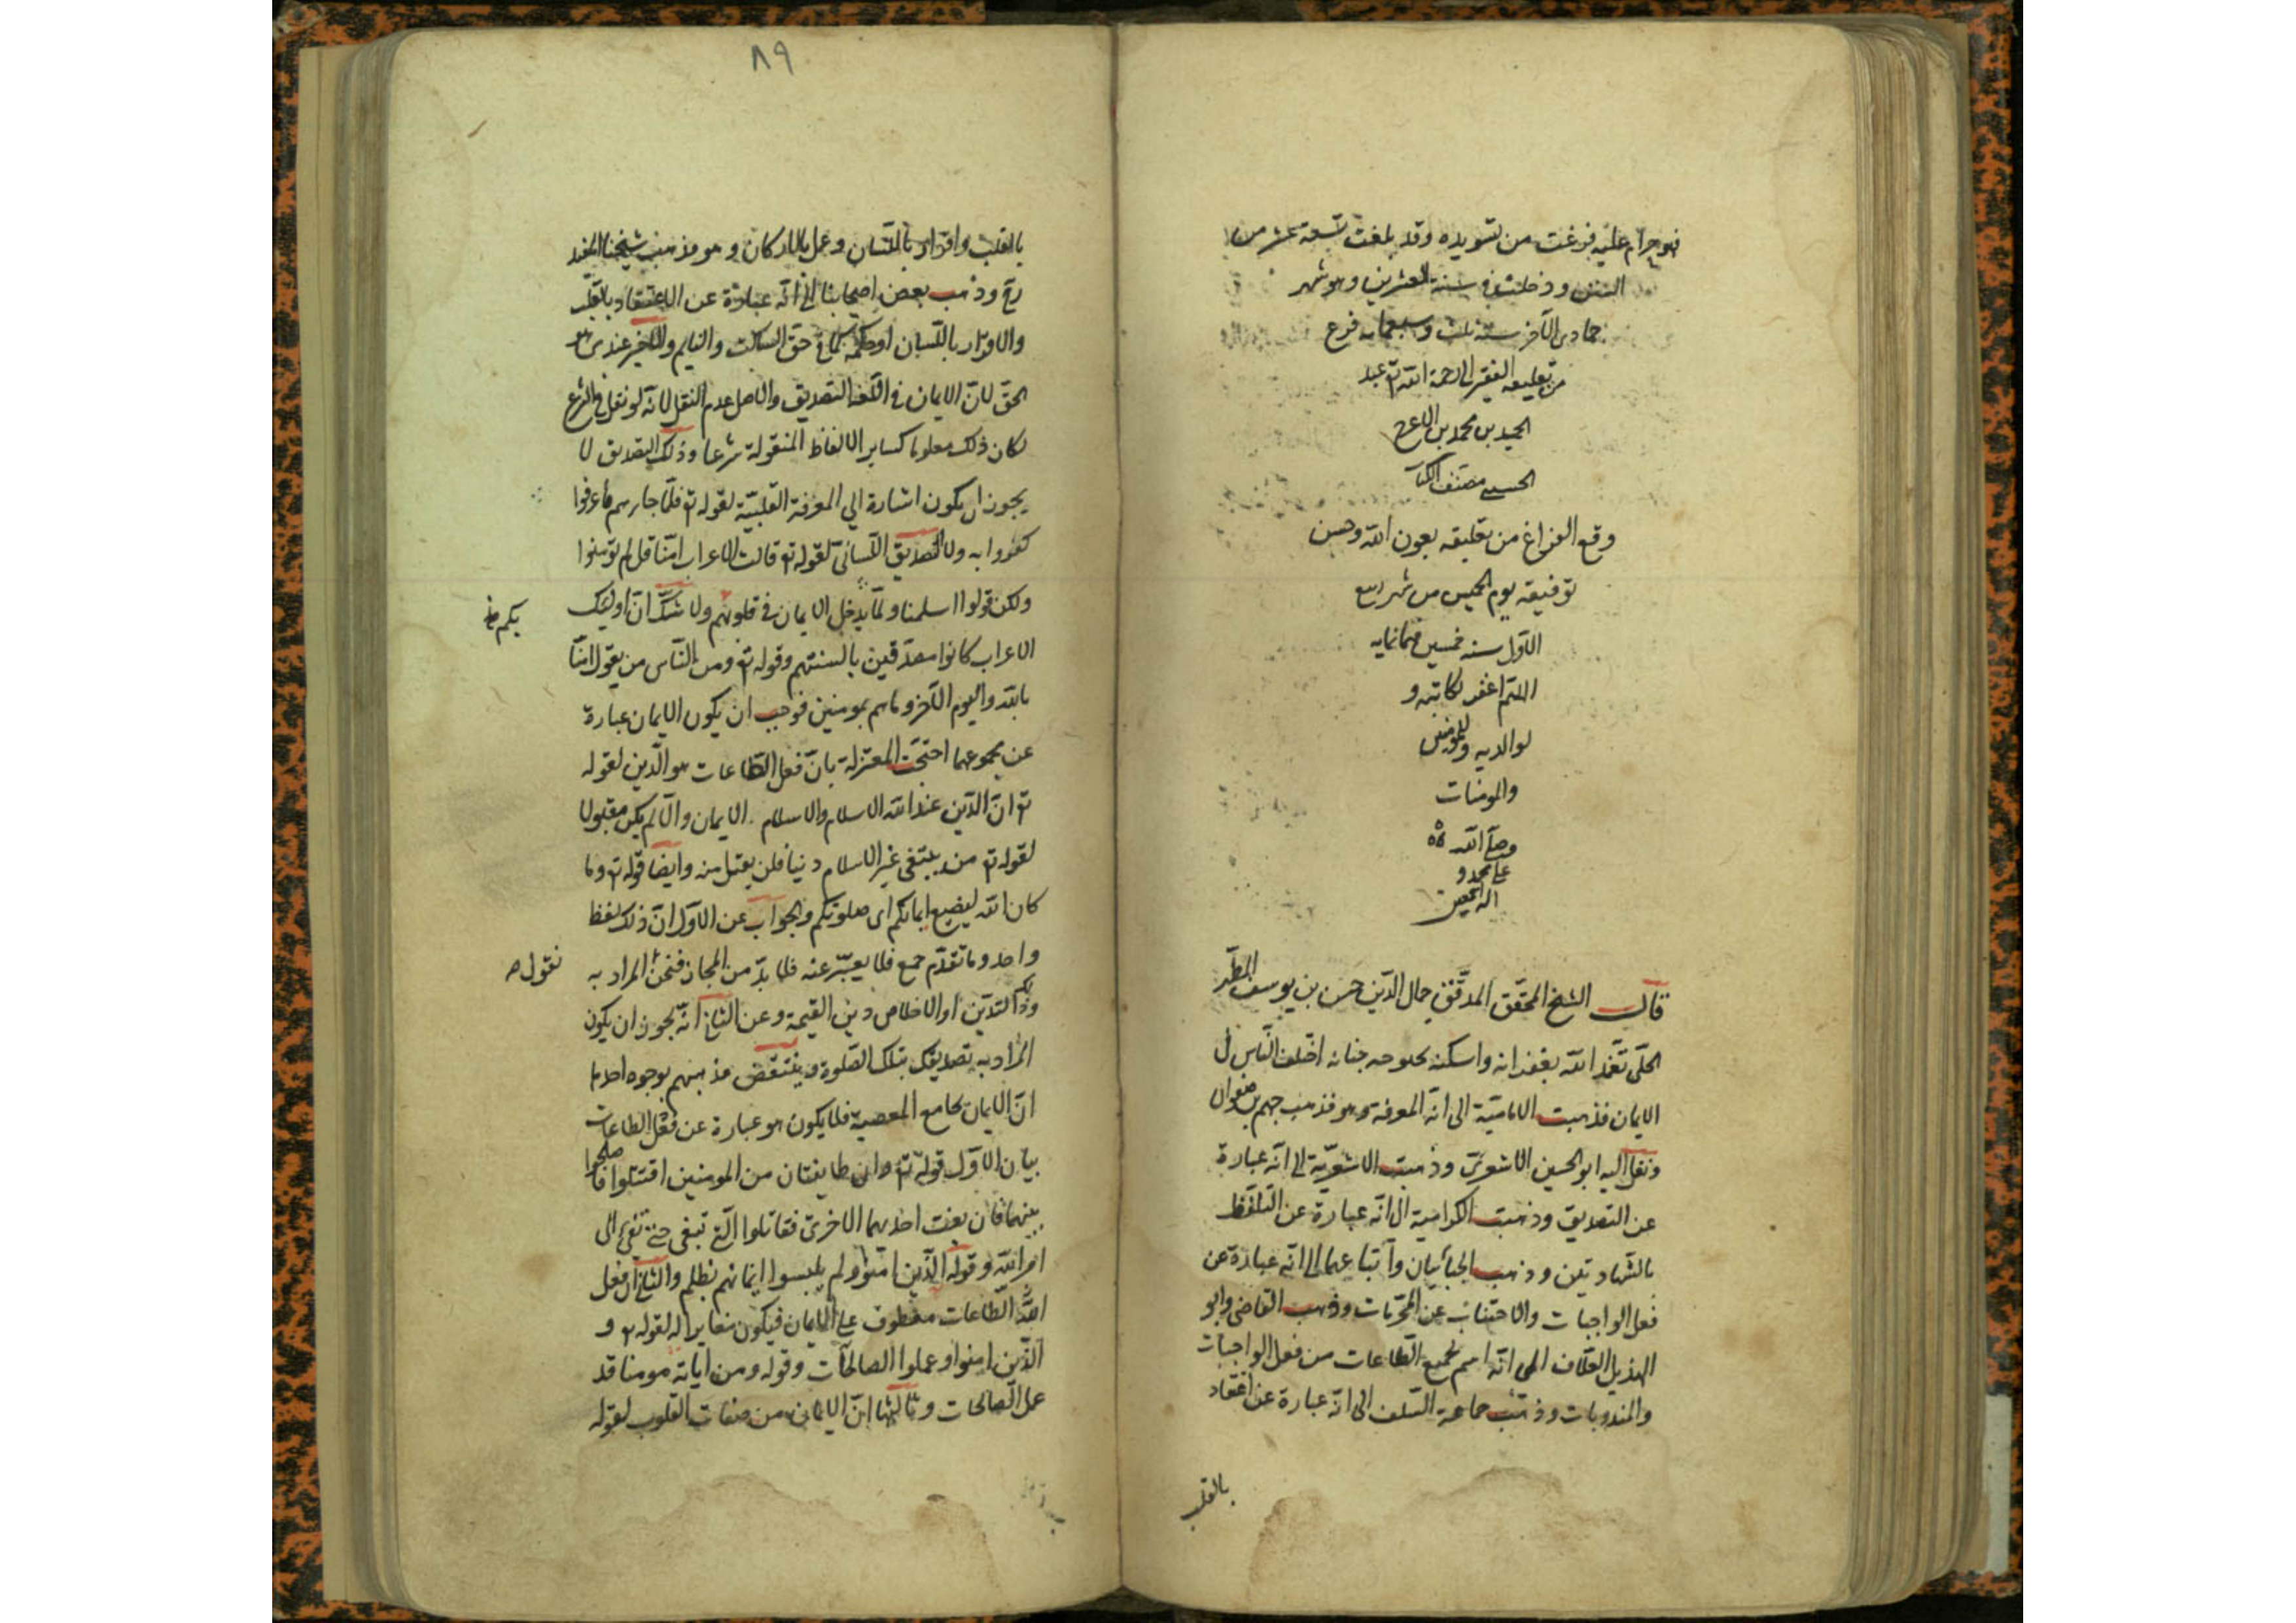 فهو حرام عليه فرغت من تسويده وقد بلغت تسعة عشر من
السنين ودخلت في سنة العشرين وهو شهر
جمادى الآخر سنة ثلث وسبعمايه فرغ
من تعليقه الفقير الى رحمة الله تع عبد
الحميد بن محمد بن الاعرج
الحسيني مصنف الكتاب
وقع الفراغ من تعليقه بعون الله وحسن
توفيقه يوم الخميس من شهر ربيع
الاول سنه خمسين وثمانمايه
اللهم اغفر لكاتبه و
لوالديه وللمومنين
والمومنات
وصلى الله
على محمد و
اله اجمعين
قال الشيخ المحقق المدقق جمال الدين حسن بن يوسف المطهر
الحلى تغمد الله بغفرانه واسكنه بحبوحه جنانه اختلف الناس في
الايمان فذهبت الامامية الى انه المعرفة وهو مذهب جهم بن صفوان
ونقل اليه ابو الحسين الاشعرى وذهبت الاشعرية الى انه عبارة
عن التصديق وذهبت الكرامية الى انه عبارة عن التلفظ
بالشهادتين وذهب الجبائيان واتباعهما الى انه عبارة عن
فعل الواجبات والاجتناب عن المحرمات وذهب القاضى وابو
الهذيل العلاف الى انه اسم لجميع الطاعات من فعل الواجبات
والمندوبات وذهب جماعة السلف الى انه عبارة عن اعتقاد
بالقلب
٨٩
بالقلب واقرار باللسان وعمل بالاركان وهو مذهب شيخنا المفيد
رح وذهب بعض اصحابنا الى انه عبارة عن الاعتقاد بالقلب
والاقرار باللسان او حكمه كما في حق الساكت والنايم والاخير عندى هو
الحق لان الايمان في اللغة التصديق والاصل عدم النقل لانه لو نقل في الشرع
لكان ذلك معلوما كساير الالفاظ المنقولة شرعا وذلك التصديق لا
يجوز ان يكون اشارة الى المعرفة القلبية لقوله تع فلما جاءهم ما عرفوا
كفروا به ولا التصديق اللسانى لقوله تع قالت الاعراب امنا قل لم تومنوا
ولكن قولوا اسلمنا ولما يدخل الايمان في قلوبهم ولا شك ان اوليك
بكم خ
الاعراب كانوا مصدقين بالسنتهم وقوله تع ومن الناس من يقول امنا
بالله واليوم الآخر وما هم بمومنين فوجب ان يكون الايمان عبارة
عن مجموعهما احتجت المعتزلة بان فعل الطاعات هو الدين لقوله
تع ان الدين عند الله الاسلام والاسلام الايمان والا لم يكن مقبولا
لقوله تع من يبتغى غير الاسلام دينا فلن يقبل منه وايضا قوله تع وما
كان الله ليضيع ايمانكم اى صلوتكم والجواب عن الاول ان ذلك لفظ
واحد وما تقدم جمع فلا يعبر عنه فلا بد من المجاز فنحن المراد به
نقول ص
وذلكم التدين او الاخلاص دين القيمة وعن الثاني انه يجوز ان يكون
المراد به تصديقكم بتلك الصلوة وينتقض مذهبهم بوجوه احدها
ان الايمان يجامع المعصية فلا يكون هو عبارة عن فعل الطاعات
بيان الاول قوله تع وان طايفتان من المومنين اقتتلوا فاصلحوا
بينهما فان بغت احديهما الاخرى فقاتلوا التي تبغى حتى تفيء الى
امر الله وقوله الذين امنوا ولم يلبسوا ايمانهم بظلم والثاني ان فعل
الطاعات معطوف على الايمان فيكون مغايرا له لقوله تع و
الذين امنوا وعملوا الصالحات وقوله ومن اياته مومنا قد
عمل الصالحات وثالثها ان الايمان من صفات القلوب لقوله